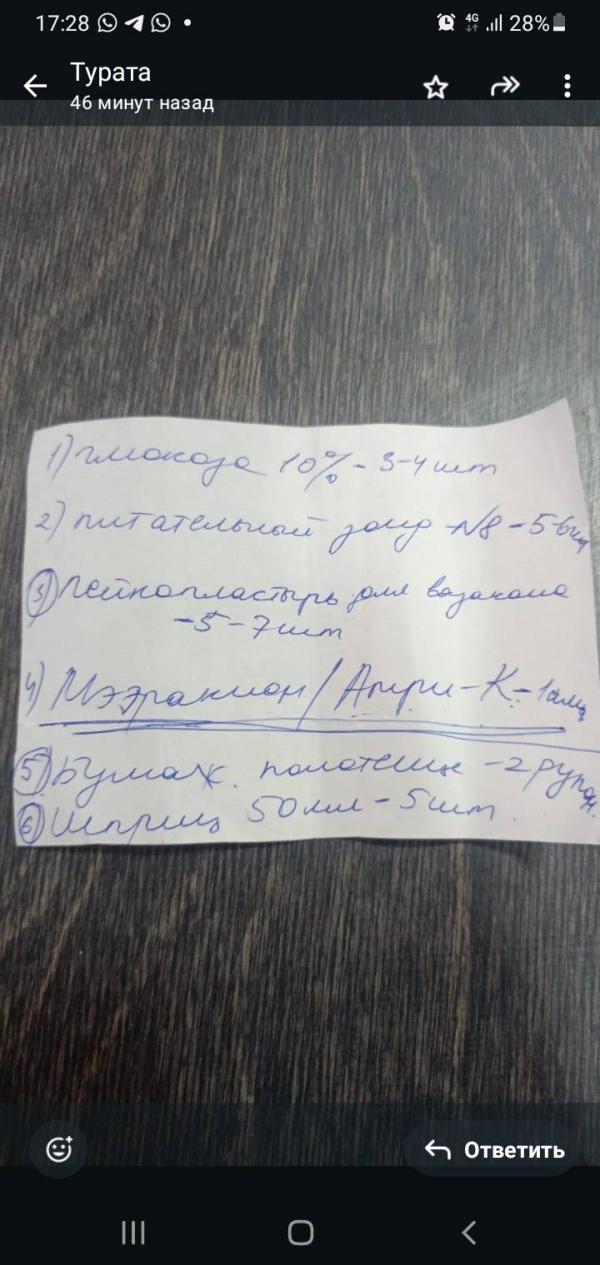 17:28
4G
28%
Турата
46 минут назад
1) глюкоза 10% - 3-4 шт
2) питательный зонд №8 - 5-6 шт
3) Лейкопластырь для вазакана
-5-7 шт
4) Мээракион / Амри-К - 1 амп
5) Бумаж. полотенце - 2 рулон.
6) Шприц 50 мл - 5 шт.
Ответить